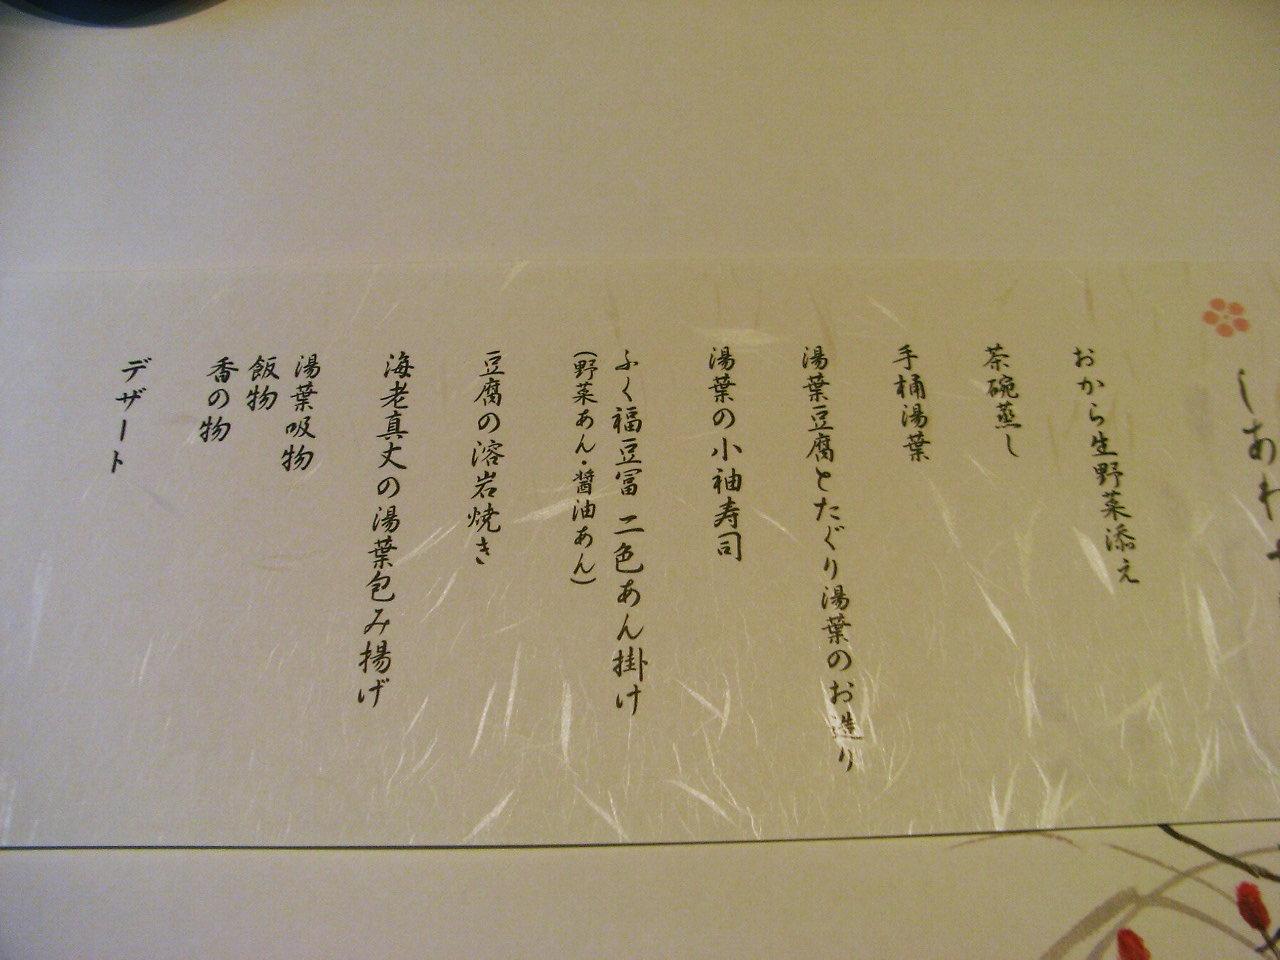 しあわ
おから生野菜添え
茶碗蒸し
手桶湯葉
湯葉豆腐とたぐり湯葉のお造り
湯葉の小袖寿司
ふく福豆冨 二色あん掛け
(野菜あん・醤油あん)
豆腐の溶岩焼き
海老真丈の湯葉包み揚げ
湯葉吸物
飯物
香の物
デザート